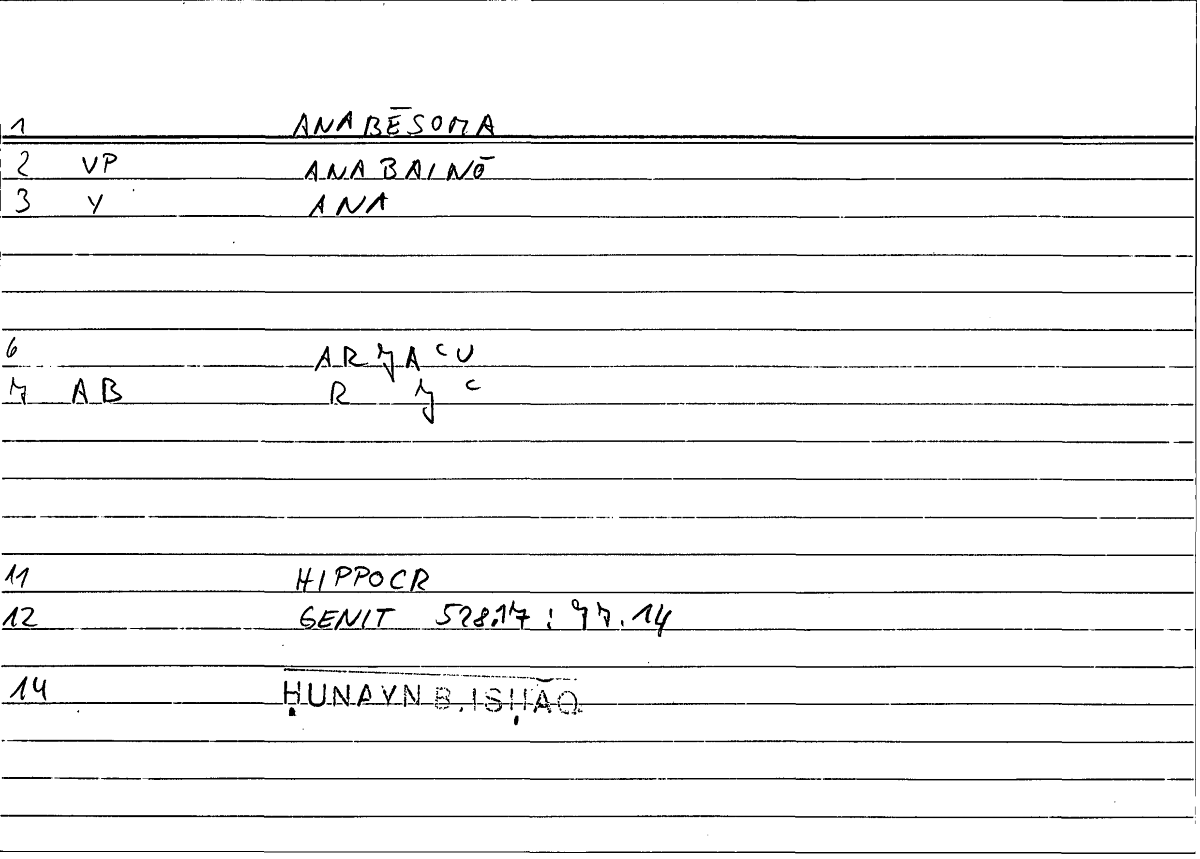 1 ANABĒSOMA
2 VP ANABAINŌ
3 Y ANA
6 ARJAʿU
7 AB R J ʿ
11 HIPPOCR
12 GENIT 528.17 : 77.14
14 ḤUNAYN B. ISḤĀQ